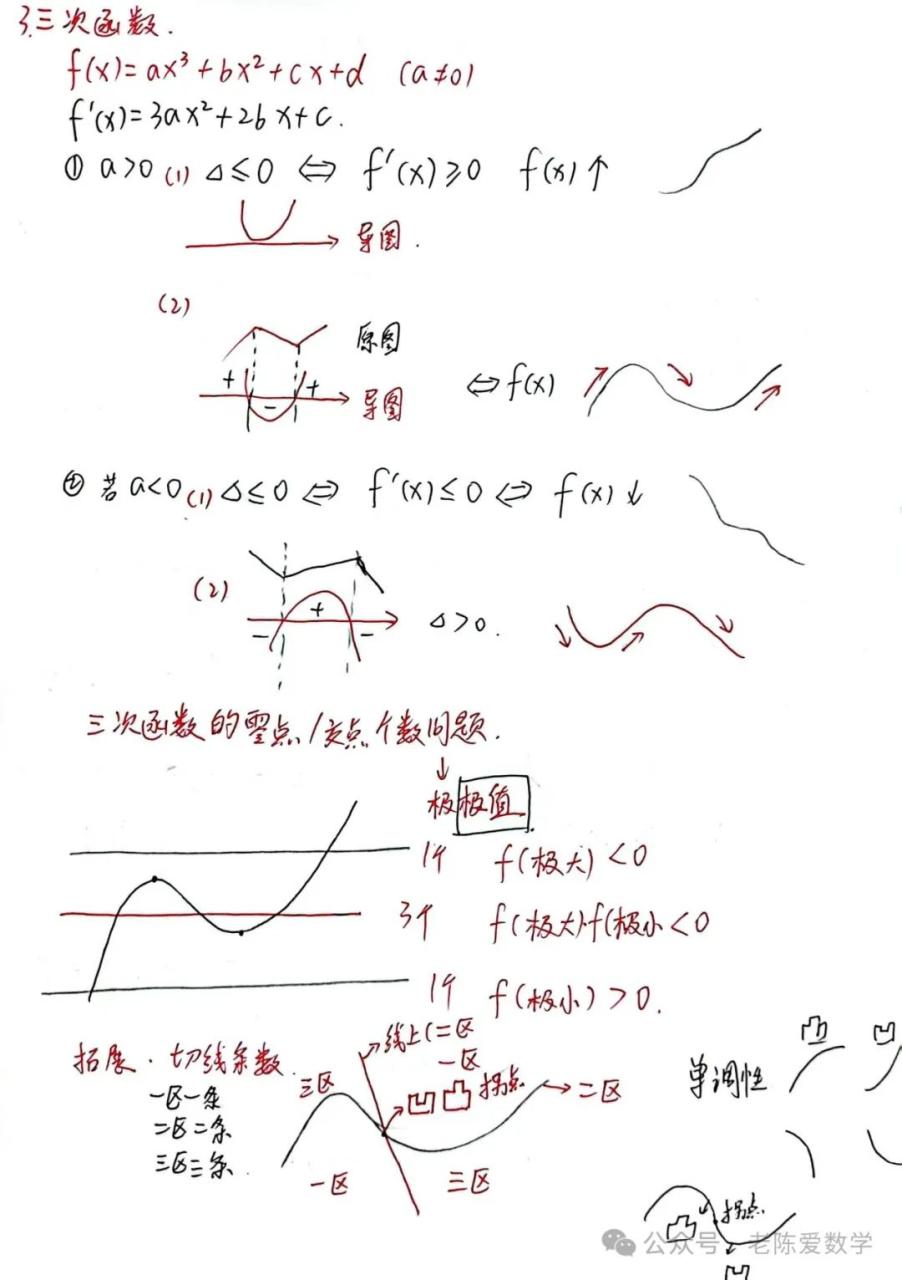 3.三次函数.
f(x)=ax³+bx²+cx+d (a≠0)
f'(x)=3ax²+2bx+c.
① a>0 (1) △≤0 ⇔ f'(x)≥0 f(x)↑
导图.
(2)
原图
+ - + 导图 ⇔ f(x)
② 若a<0 (1) △≤0 ⇔ f'(x)≤0 ⇔ f(x)↓
(2)
- + - △>0.
三次函数的零点/交点个数问题.
↓
极极值
1个 f(极大)<0
3个 f(极大)·f(极小<0
1个 f(极小)>0.
拓展·切线条数
一区一条
二区二条
三区三条.
线上(二区
一区
三区
凹凸 拐点
→二区
一区
三区
单调性
凸
凹
凸
拐点
凹
公众号·老陈爱数学